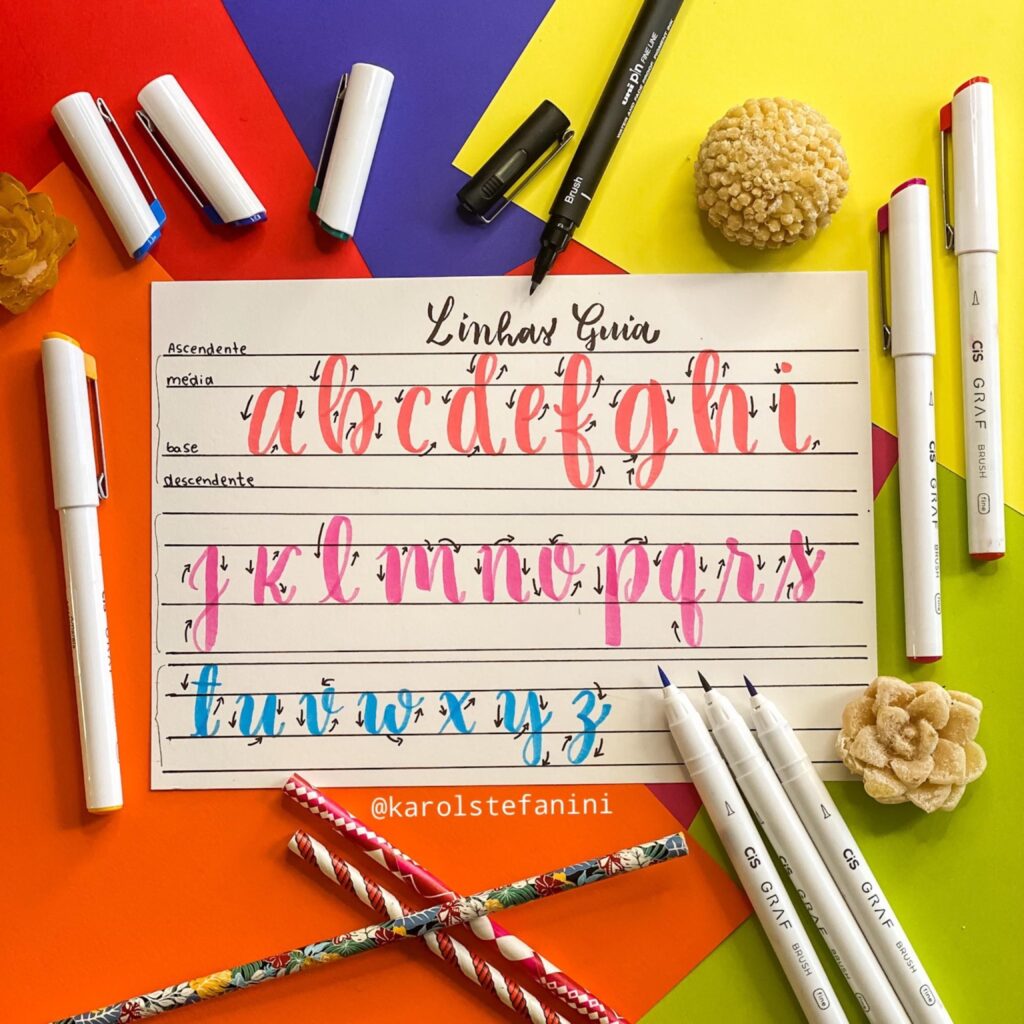 Linhas Guia
Ascendente
média
base
descendente
a b c d e f g h i
j k l m n o p q r s
t u v w x y z
@karolstefanini
uni pin FINE LINE
Brush
CiS GRAF BRUSH fine
CiS GRAF BRUSH fine
CiS GRAF BRUSH fine
CiS GRAF BRUSH fine
CiS GRAF BRUSH fine